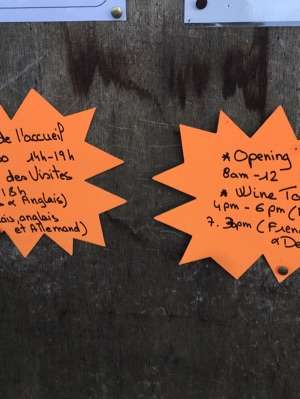 de l'accueil
14h-19h
des Visites
18h
& Anglais)
anglais
et Allemand)
* Opening
8am-12
* Wine
4pm-6pm (
7.30pm (
&